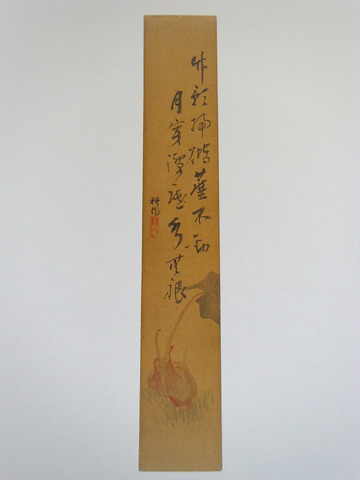 竹影掃階塵不動
月穿潭底水無痕